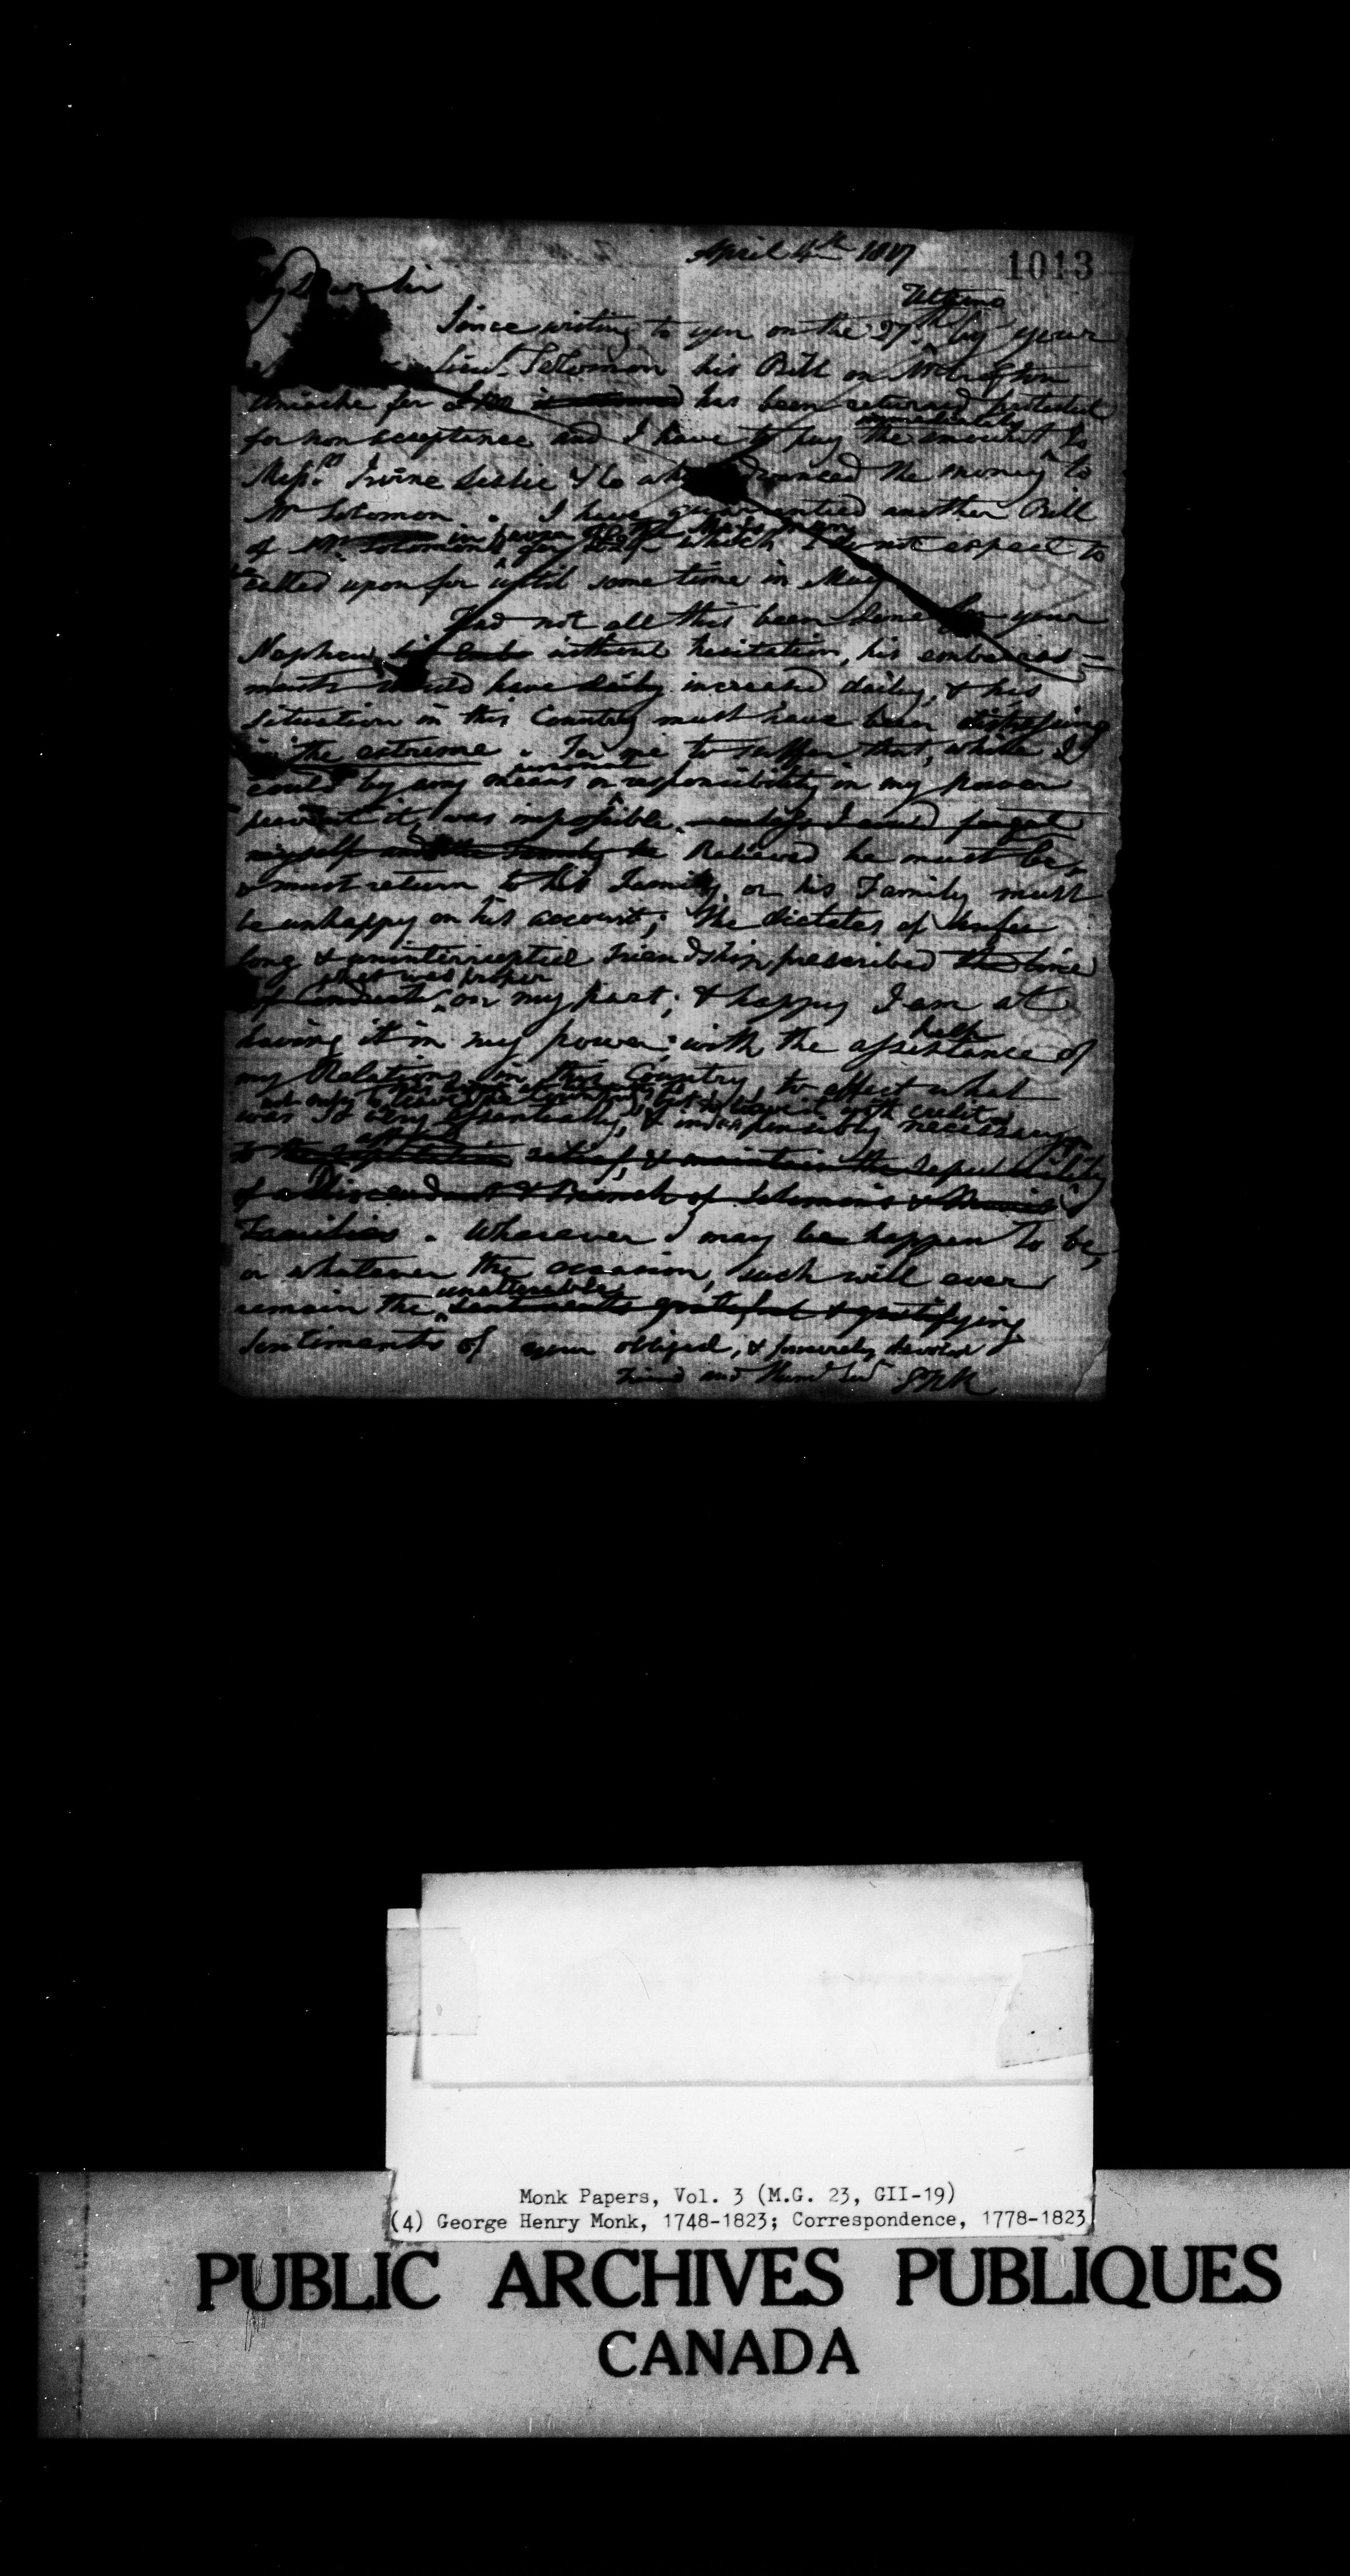 April 4th 1817
1013
My Dear Sir
Ultimo
Since writing to you on the 27th by your
Lieut. Solomon his Bill on Mr Crofton
Uniacke for has been returned protested
immediately
for non acceptance and I have to pay the amount to
Messrs Irvine Leslie & Co who advanced the money to
Mr Solomon. I have guarantied another Bill
in favor of
of Mr Solomon's for which I do not expect to
be called upon for until some time in May
Had not all this been done for your
Nephew without hesitation, his embarass=
ments would have daily increased daily, & his
situation in this Country must have been distressing
in the extreme. For me to suffer that, while I
personal
could by any means or responsibility in my power
prevent it, was impossible. unless I could forget
myself and the family he Relieved he must be,
& must return to his Family, or his Family must
be unhappy on his account; The dictates of
long & uninterrupted Friendship prescribed the line
what was proper
of Conduct on my part; & happy I am at
help
having it in my power with the assistance of
my Relations in this Country, to effect what
not only to leave the Country, but to leave it with credit
was so very essentially, & indispensibly necessary
to the reputation relief, & maintain the respectability
of a Descendant & Branch of Solomons &
Families. Wherever I may be happen to be,
or whatever the occasion, such will ever
unalterable
remain the sentiments grateful & gratifying
sentiments of your obliged, & sincerely devoted
Friend and Humb Sert GHM
Monk Papers, Vol. 3 (M.G. 23, GII-19)
(4) George Henry Monk, 1748-1823; Correspondence, 1778-1823
PUBLIC ARCHIVES PUBLIQUES
CANADA